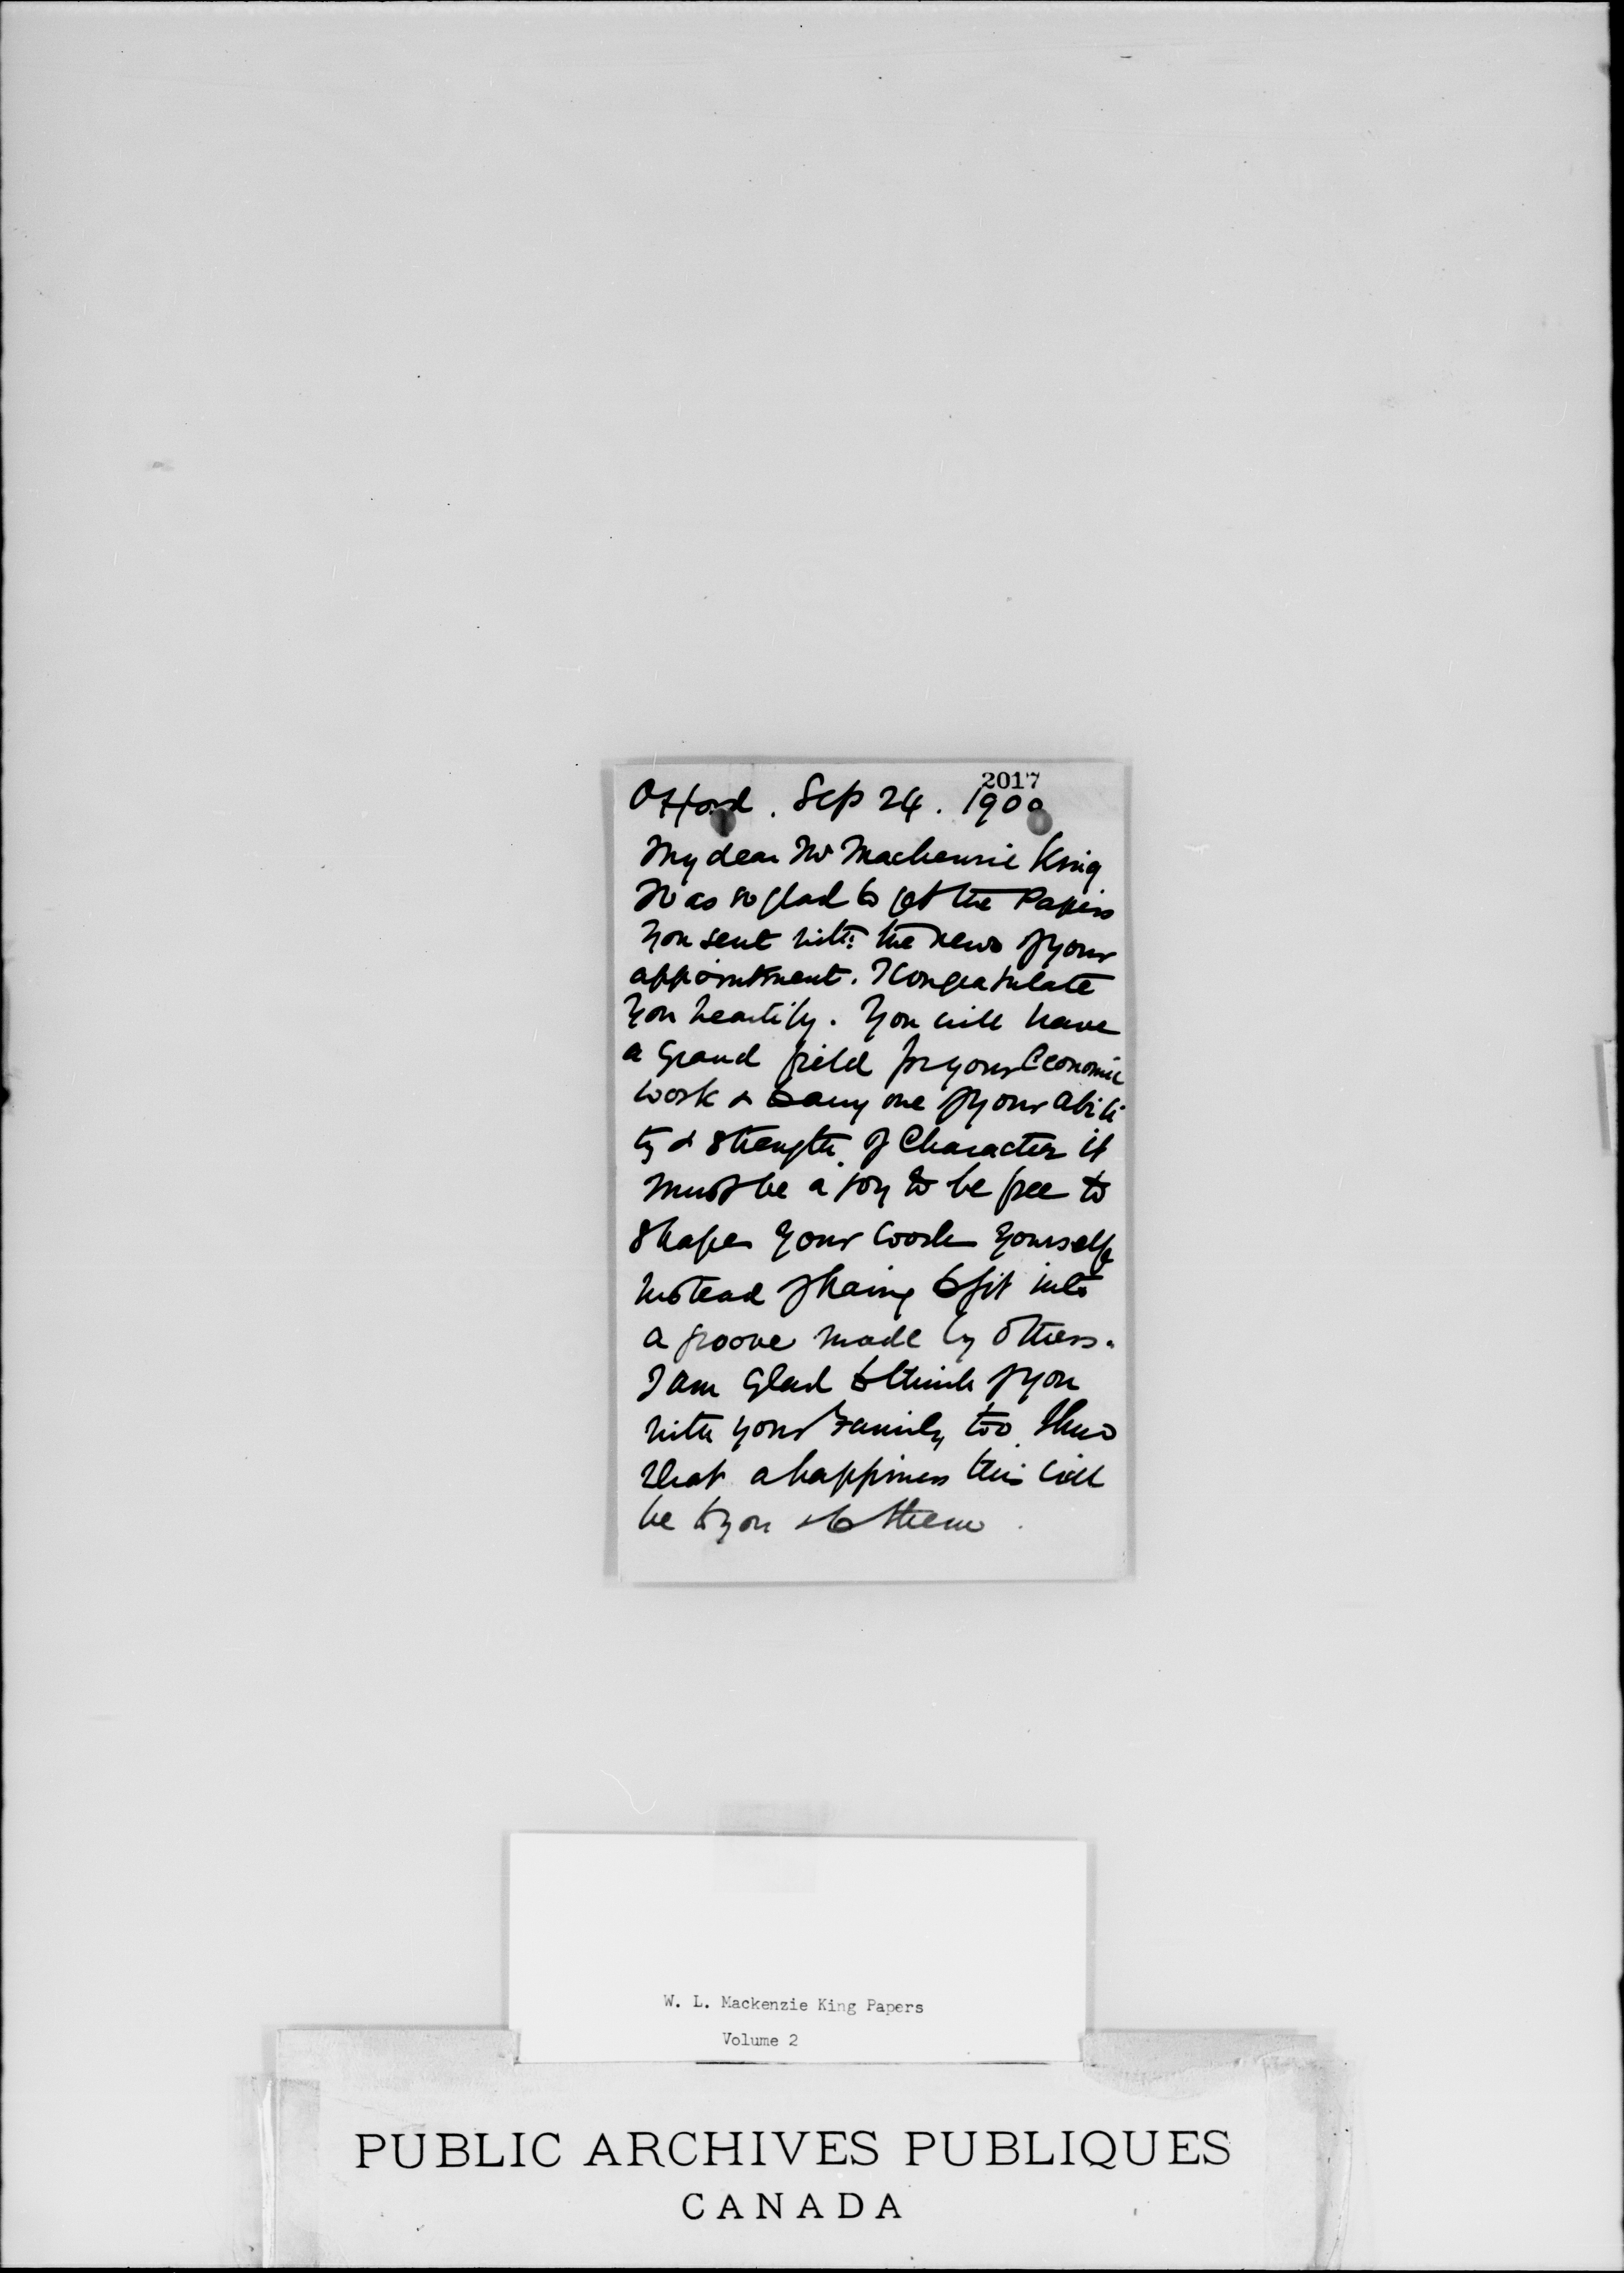 2017
Oxford. Sep 24. 1900
My dear Mr Mackenzie King
I was so glad to get the Papers
you sent with the news of your
appointment. I congratulate
you heartily. You will have
a grand field for your Economic
work & to any one of your abili
ty & strength of Character it
must be a joy to be free to
shape your work yourself
instead of having to fit into
a groove made by others.
I am glad to think of you
with your Family too. I know
what a happiness this will
be to you & to them.
W. L. Mackenzie King Papers
Volume 2
PUBLIC ARCHIVES PUBLIQUES
CANADA